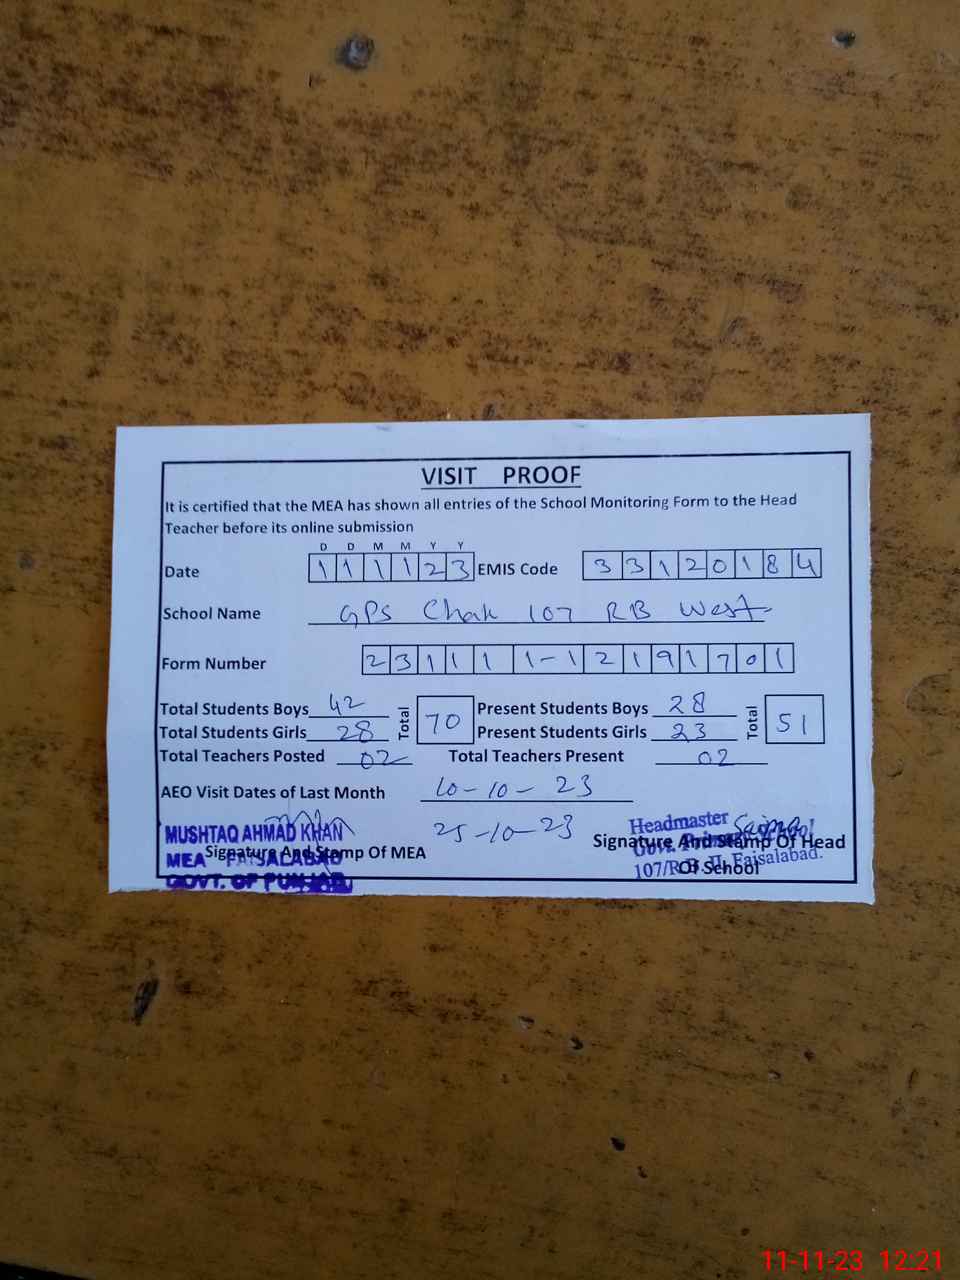 VISIT PROOF
It is certified that the MEA has shown all entries of the School Monitoring Form to the Head
Teacher before its online submission
D D M M Y Y
Date 1 1 1 1 2 3 EMIS Code 3 3 1 2 0 1 8 4
School Name GPS Chak 107 RB West
Form Number 2 3 1 1 1 1-1 2 1 9 1 7 0 1
Total Students Boys 42 Total 70 Present Students Boys 28 Total 51
Total Students Girls 28 Present Students Girls 23
Total Teachers Posted 02 Total Teachers Present 02
AEO Visit Dates of Last Month 10-10-23
25-10-23
MUSHTAQ AHMAD KHAN
MEA FAISALABAD
GOVT. OF PUNJAB
Signature And Stamp Of MEA
Headmaster
Govt. Primary School
107/R.B. II, Faisalabad.
Signature And Stamp Of Head
Of School
11-11-23 12:21